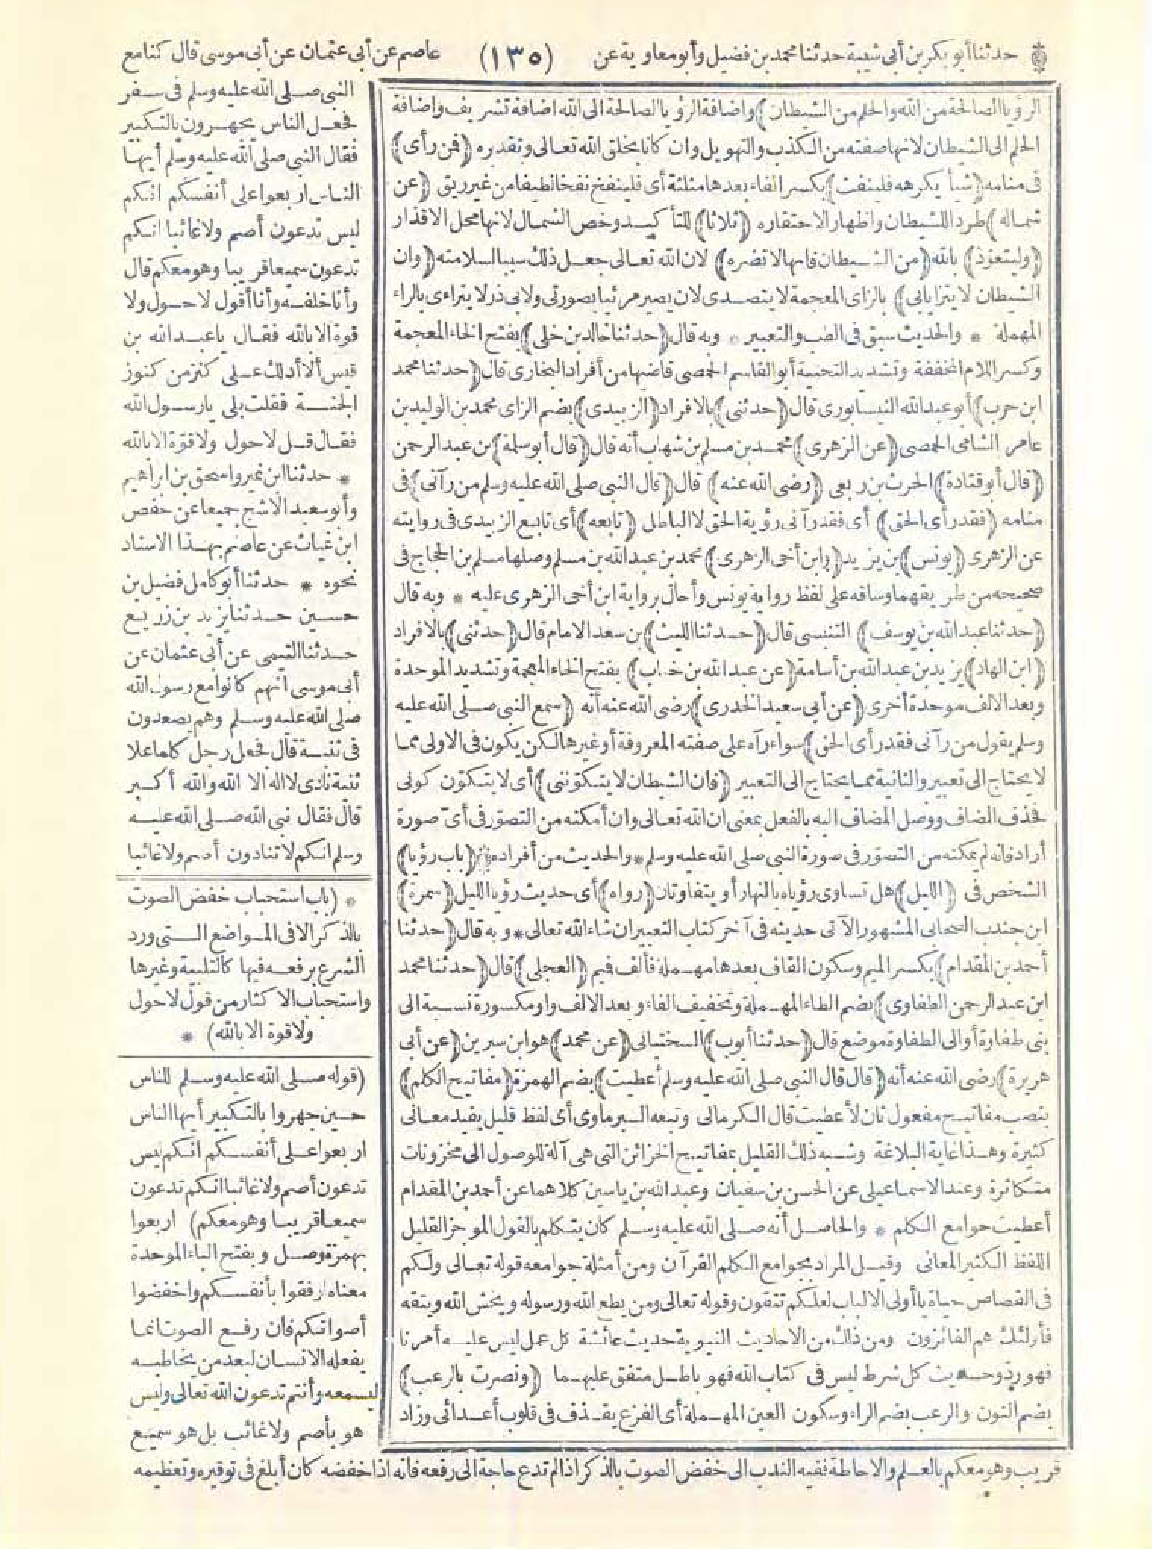 حدثنا أبو بكر بن أبي شيبة حدثنا محمد بن فضيل وأبو معاوية عن (١٣٥) عاصم عن أبي عثمان عن أبي موسى قال كنا مع
الرؤيا الصالحة من الله والحلم من الشيطان) واضافة الرؤيا الصالحة الى الله اضافة تشريف واضافة
الحلم الى الشيطان لانها صفته من الكذب والتهويل وان كانا بخلق الله تعالى وتقديره (فمن رأى)
في منامه (شيأ يكرهه فلينفث) بكسر الفاء بعدها مثلثة أي فلينفخ نفخا لطيفا من غير ريق (عن
شماله) طردا للشيطان واظهار الاحتقاره (ثلاثا) للتأكيد وخص الشمال لانها محل الاقذار
(وليتعوذ) بالله (من الشيطان فانها لا تضره) لان الله تعالى جعل ذلك سببا لسلامته (وان
الشيطان لا يتزايا بي) بالزاى المعجمة لا يتصدى لان يصير مرئيا بصورتي ولابى ذر لا يتراءى بالراء
المهملة * والحديث سبق في الطب والتعبير * وبه قال (حدثنا خالد بن خلي) بفتح الخاء المعجمة
وكسر اللام المخففة وتشديد التحتية أبو القاسم الحمصى قاضيها من أفراد البخارى قال (حدثنا محمد
ابن حرب) أبو عبد الله النيسابورى قال (حدثني) بالافراد (الزبيدى) بضم الزاى محمد بن الوليد بن
عامر الشامى الحمصى (عن الزهرى) محمد بن مسلم بن شهاب أنه قال (قال أبو سلمة) بن عبد الرحمن
(قال أبو قتادة) الحرث بن ربعى (رضى الله عنه) قال (قال النبي صلى الله عليه وسلم من رآنى) في
منامه (فقد رأى الحق) أى فقد رآنى رؤية الحق لا الباطل (تابعه) أى تابع الزبيدى في روايته
عن الزهرى (يونس) بن يزيد (وابن أخى الزهرى) محمد بن عبد الله بن مسلم وصلها مسلم بن الحجاج في
صحيحه من طريقهما وساقه على لفظ رواية يونس وأحال برواية ابن أخى الزهرى عليه * وبه قال
(حدثنا عبد الله بن يوسف) التنيسى قال (حدثنا الليث) بن سعد الامام قال (حدثني) بالافراد
(ابن الهاد) يزيد بن عبد الله بن أسامة (عن عبد الله بن خباب) بفتح الخاء المعجمة وتشديد الموحدة
وبعد الالف موحدة أخرى (عن أبى سعيد الخدرى) رضى الله عنه أنه (سمع النبي صلى الله عليه
وسلم يقول من رآنى فقد رأى الحق) سواء رآه على صفته المعروفة أو غيرها لكن يكون في الاولى مما
لا يحتاج الى تعبير والثانية مما يحتاج الى التعبير (فان الشيطان لا يتكوننى) أى لا يتكون كونى
فحذف المضاف ووصل المضاف اليه بالفعل بمعنى ان الله تعالى وان أمكنه من التصور في أى صورة
أراد فانه لم يمكنه من التصور في صورة النبي صلى الله عليه وسلم * والحديث من أفراده (باب رؤيا)
الشخص في (الليل) هل تساوى رؤياه بالنهار أو يتفاوتان (رواه) أى حديث رؤيا الليل (سمرة)
ابن جندب الصحابى المشهور الآتى حديثه في آخر كتاب التعبير ان شاء الله تعالى * وبه قال (حدثنا
أحمد بن المقدام) بكسر الميم وسكون القاف بعدها مهملة فألف فميم (العجلى) قال (حدثنا محمد
ابن عبد الرحمن الطفاوى) بضم الطاء المهملة وتخفيف الفاء وبعد الالف واو مكسورة نسبة الى
بنى طفاوة أو الى الطفاوة موضع قال (حدثنا أيوب) السختيانى (عن محمد) هو ابن سيرين (عن أبى
هريرة) رضى الله عنه أنه (قال قال النبي صلى الله عليه وسلم أعطيت) بضم الهمزة (مفاتيح الكلم)
بنصب مفاتيح مفعول ثان لأعطيت قال الكرمانى وتبعه البرماوى أى لفظ قليل يفيد معانى
كثيرة وهذا غاية البلاغة وشبه ذلك القليل بمفاتيح الخزائن التى هى آلة للوصول الى مخزونات
متكاثرة وعند الاسماعيلى عن الحسن بن سفيان وعبد الله بن ياسين كلاهما عن أحمد بن المقدام
أعطيت جوامع الكلم * والحاصل أنه صلى الله عليه وسلم كان يتكلم بالقول الموجز القليل
اللفظ الكثير المعانى وقيل المراد بجوامع الكلم القرآن ومن أمثلة جوامعه قوله تعالى ولكم
في القصاص حياة يا أولى الالباب لعلكم تتقون وقوله تعالى ومن يطع الله ورسوله ويخش الله ويتقه
فأولئك هم الفائزون ومن ذلك من الاحاديث النبوية حديث عائشة كل عمل ليس عليه أمرنا
فهو رد وحديث كل شرط ليس في كتاب الله فهو باطل متفق عليهما (ونصرت بالرعب)
بضم النون والرعب بضم الراء وسكون العين المهملة أى الفزع يقذف في قلوب أعدائى وزاد
النبي صلى الله عليه وسلم في سفر
فجعل الناس يجهرون بالتكبير
فقال النبي صلى الله عليه وسلم أيها
الناس اربعوا على أنفسكم انكم
ليس تدعون أصم ولا غائبا انكم
تدعون سميعا قريبا وهو معكم قال
وأنا خلفه وأنا أقول لا حول ولا
قوة الا بالله فقال يا عبد الله بن
قيس ألا أدلك على كنز من كنوز
الجنة فقلت بلى يا رسول الله
فقال قل لا حول ولا قوة الا بالله
* حدثنا ابن نمير واسحق بن ابراهيم
وأبو سعيد الاشج جميعا عن حفص
ابن غياث عن عاصم بهذا الاسناد
نحوه * حدثنا أبو كامل فضيل بن
حسين حدثنا يزيد بن زريع
حدثنا التيمى عن أبى عثمان عن
أبى موسى أنهم كانوا مع رسول الله
صلى الله عليه وسلم وهم يصعدون
في ثنية قال فجعل رجل كلما علا
ثنية نادى لا اله الا الله والله أكبر
قال فقال نبى الله صلى الله عليه
وسلم انكم لا تنادون أصم ولا غائبا
* (باب استحباب خفض الصوت
بالذكر الا فى المواضع التى ورد
الشرع برفعه فيها كالتلبية وغيرها
واستحباب الاكثار من قول لا حول
ولا قوة الا بالله) *
(قوله صلى الله عليه وسلم للناس
حين جهروا بالتكبير أيها الناس
اربعوا على أنفسكم انكم ليس
تدعون أصم ولا غائبا انكم تدعون
سميعا قريبا وهو معكم) اربعوا
بهمزة وصل وبفتح الباء الموحدة
معناه ارفقوا بأنفسكم واخفضوا
أصواتكم فان رفع الصوت انما
يفعله الانسان لبعد من يخاطبه
ليسمعه وأنتم تدعون الله تعالى وليس
هو بأصم ولا غائب بل هو سميع
قريب وهو معكم بالعلم والاحاطة ففيه الندب الى خفض الصوت بالذكر اذا لم تدع حاجة الى رفعه فانه اذا خفضه كان أبلغ في توقيره وتعظيمه